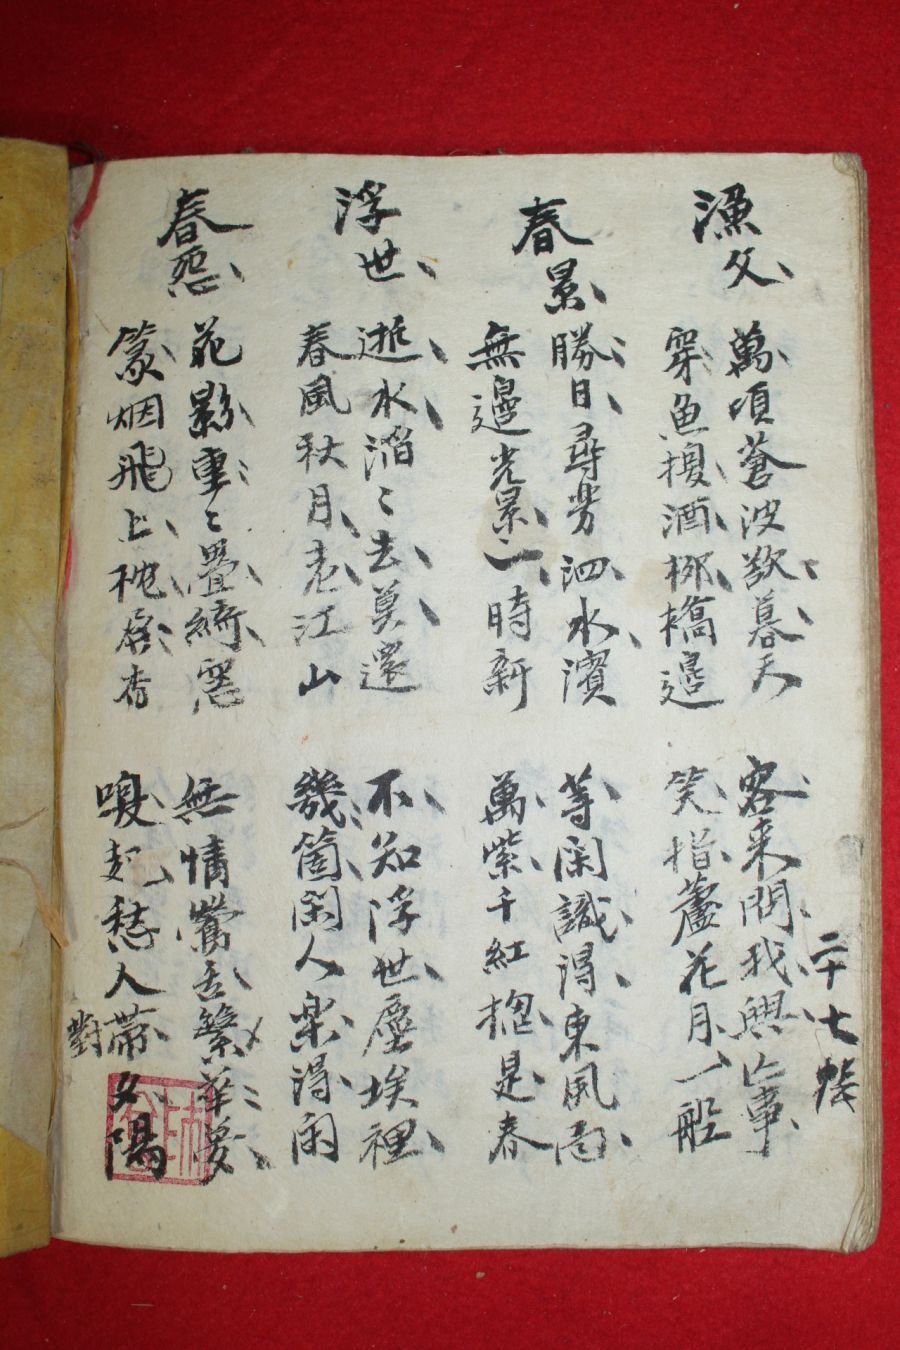 漁父
萬頃蒼波欲暮天
穿魚換酒柳橋邊
客來問我興亾事
笑指蘆花月一般
二十七
春景
勝日尋芳泗水濱
無邊光景一時新
等闲識得東風面
萬紫千紅摠是春
浮世
逝水滔〻去莫還
春風秋月老江山
不知浮世塵埃裡
幾箇闲人樂得闲
春怨
花影重〻疊綺窓
篆烟飛上枕屏香
無情鶯舌繁華夢
喚起愁人帶夕陽
對